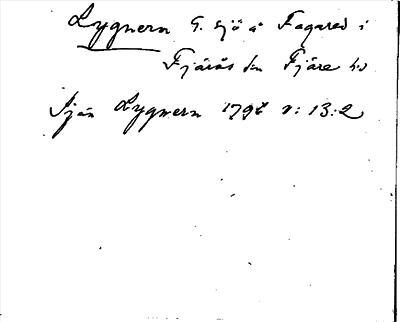 Lygnern G. sjö å Fagared i
Fjärås sn Fjäre hd
Sjön Lygnern 1792 v: 13:2